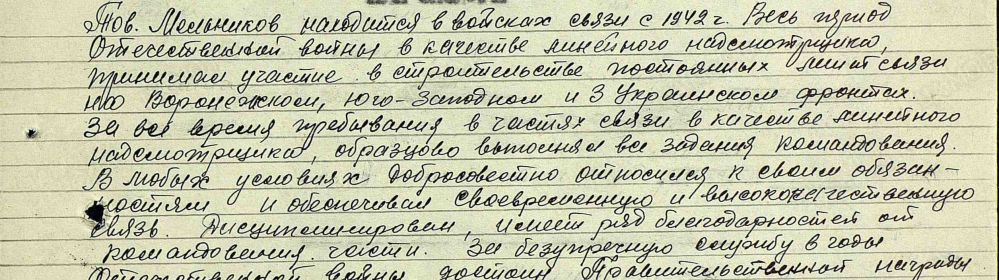 Тов. Мельников находится в войсках связи с 1942 г. Весь период
Отечественной войны в качестве линейного надсмотрщика,
принимал участие в строительстве постоянных линий связи
на Воронежском, Юго-Западном и 3 Украинском фронтах.
За все время пребывания в частях связи в качестве линейного
надсмотрщика, образцово выполнял все задания командования.
В любых условиях добросовестно относился к своим обязан-
ностям и обеспечивал своевременную и высококачественную
связь. Дисциплинирован, имеет ряд благодарностей от
командования части. За безупречную службу в годы
Отечественной войны достоин Правительственной награды